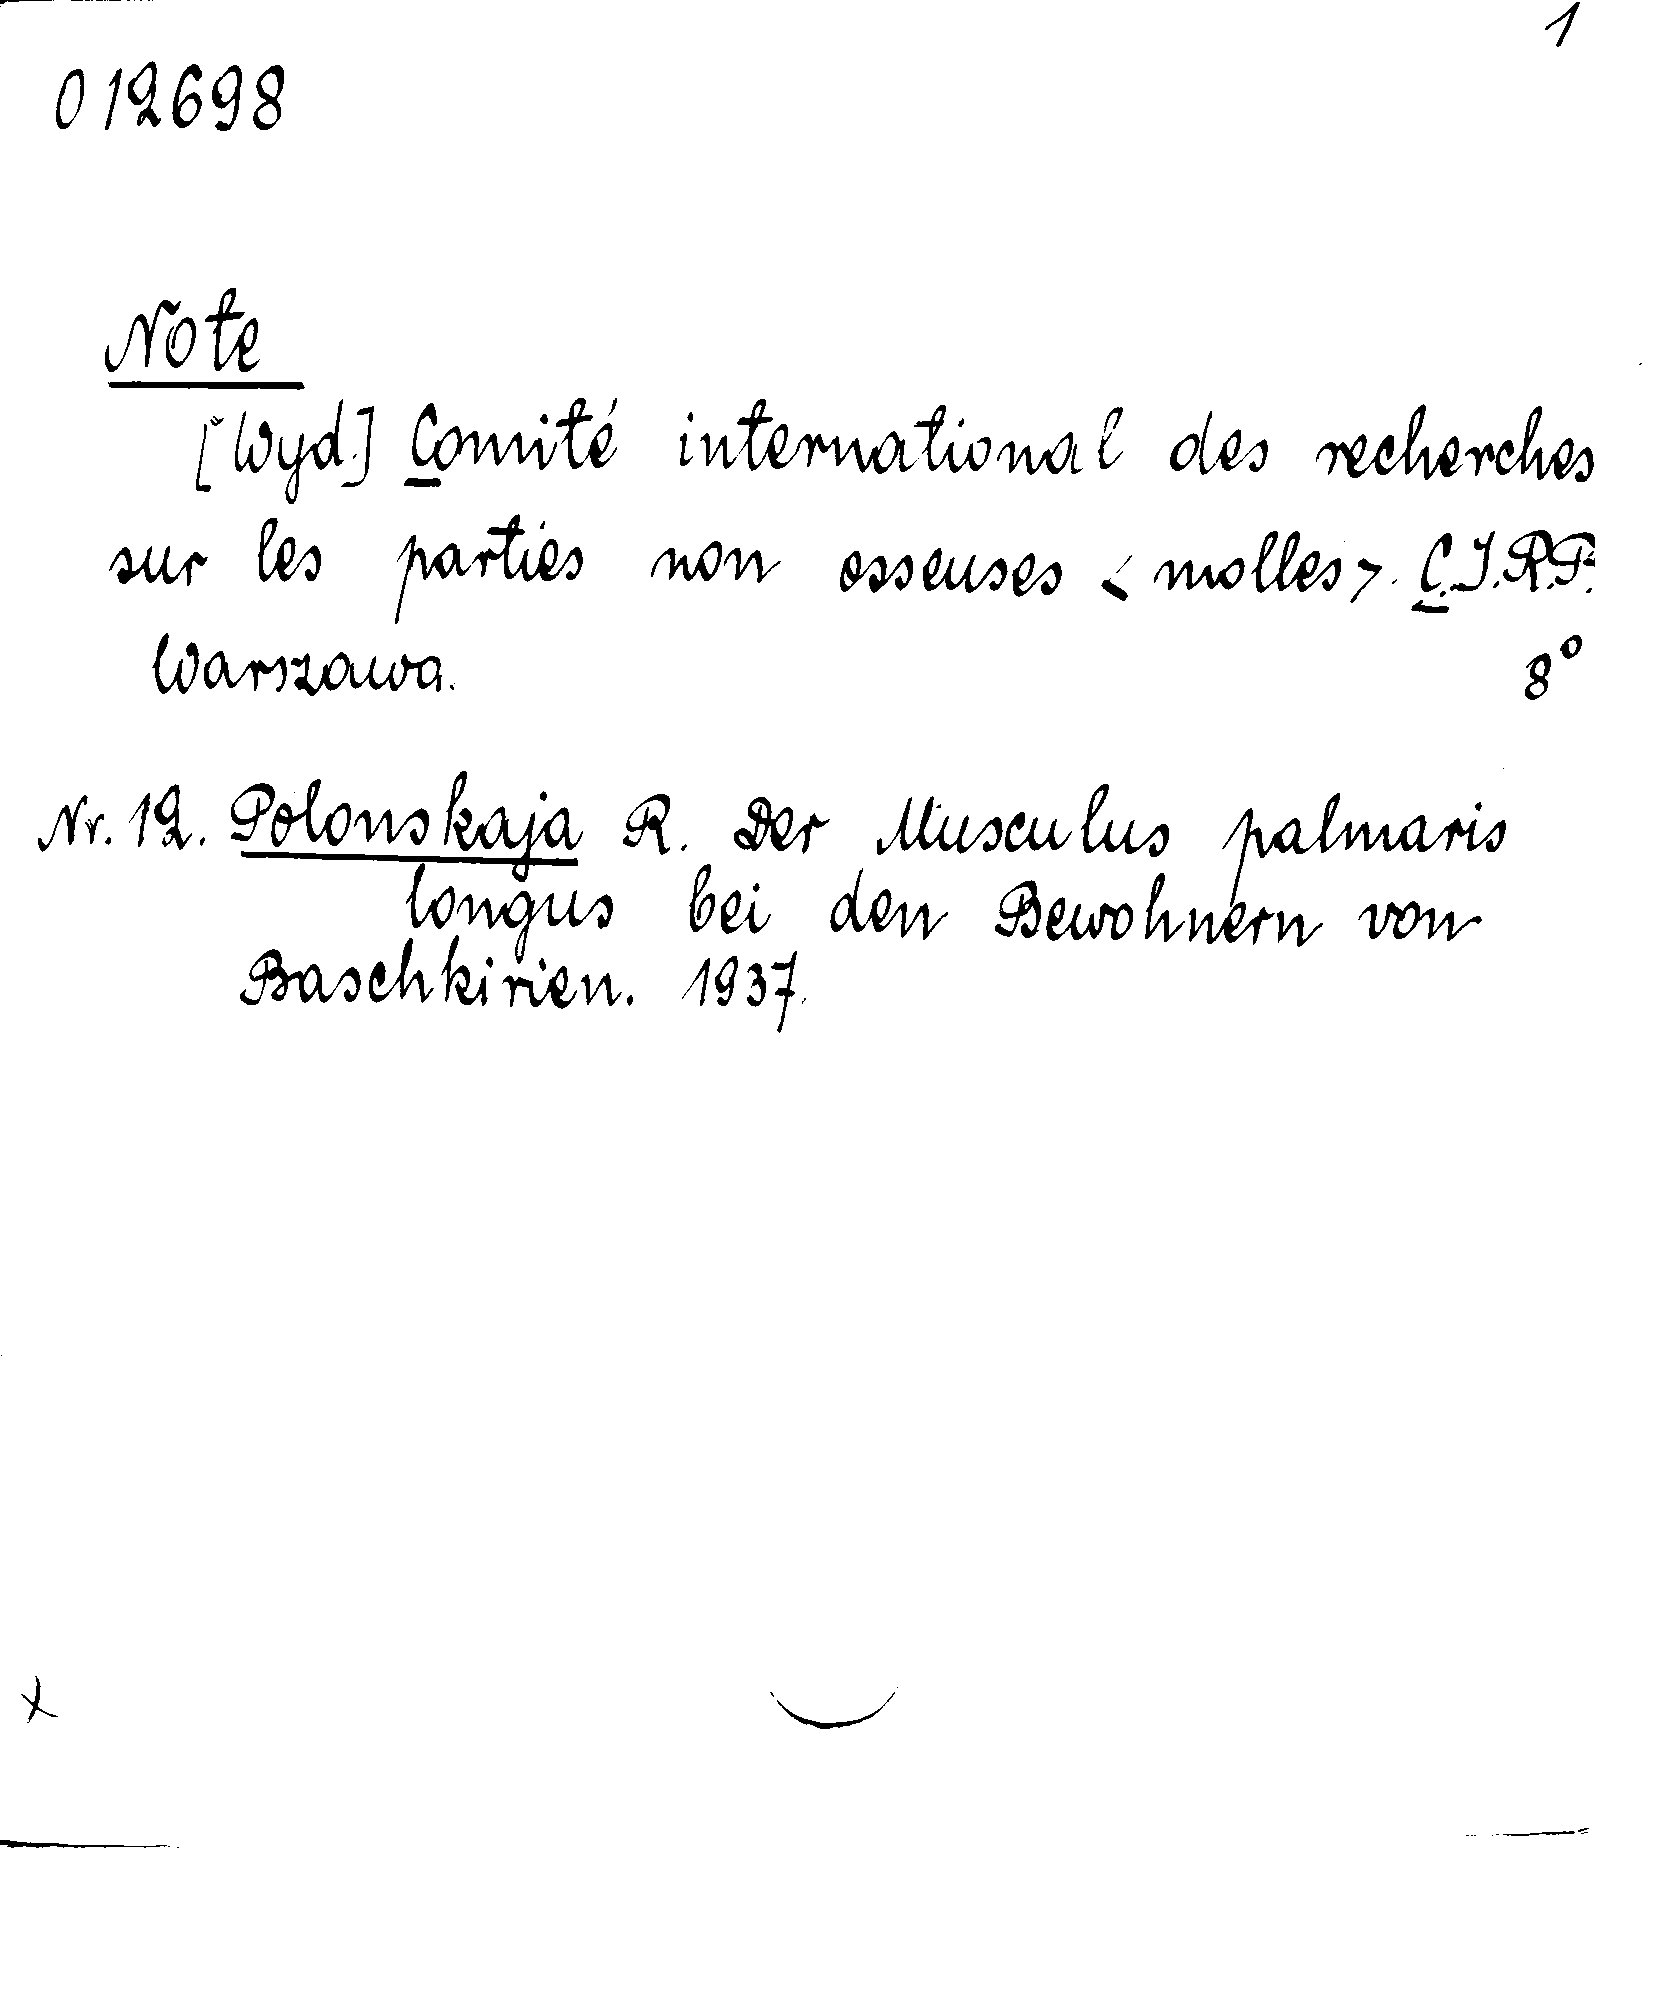 1
012698
Note
[Wyd.] Comité international des recherches
sur les parties non osseuses <molles>. C.I.R.P.
Warszawa. 8°
Nr. 12. Polonskaja R. Der Musculus palmaris
longus bei den Bewohnern von
Baschkirien. 1937.
x